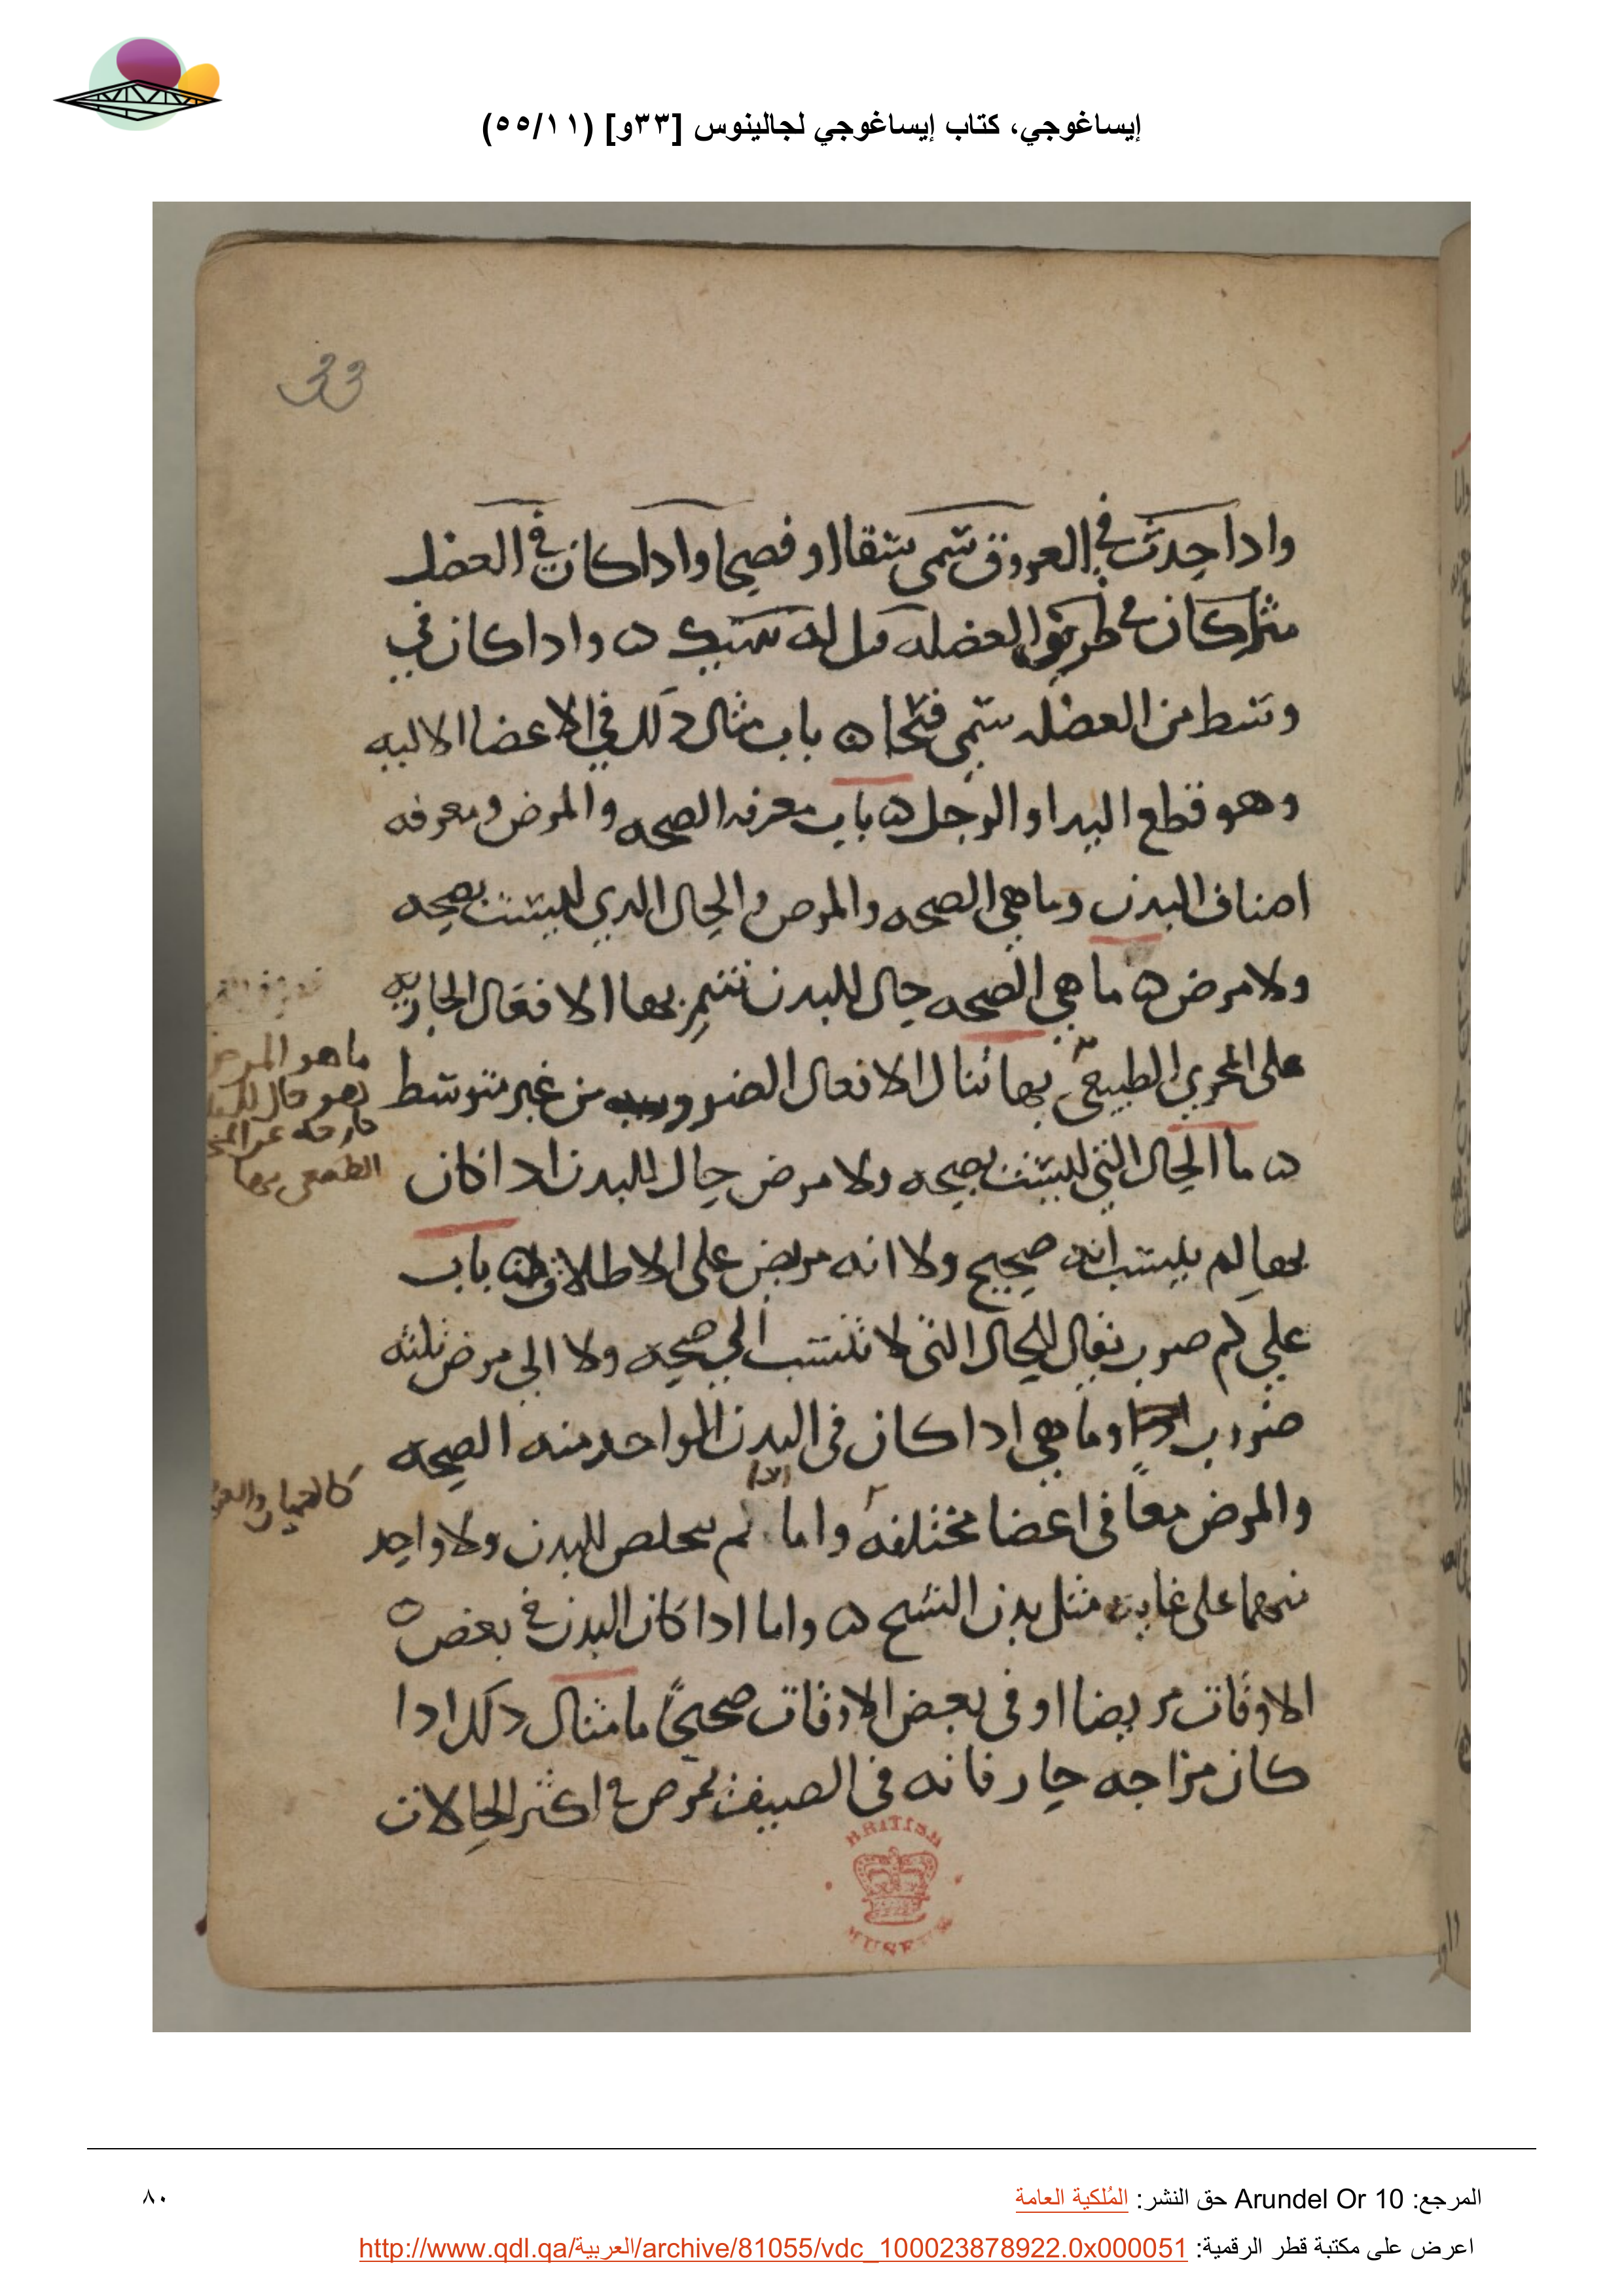 إيساغوجي، كتاب إيساغوجي لجالينوس [٣٣و] (٥٥/١١)
33
واداحدث في العروق سمى شقا او فصحا وادا كان في العضل
كان في طريق العضله قيل له هتك ه وادا كان في
وسط من العضله سمى فتحا ه باب مثال دلك في الاعضا الاليه
وهو قطع اليد او الرجل ه باب معرفه الصحه والمرض ومعرفه
اصناف البدن وما هي الصحه والمرض والحال الدي ليست بصحه
ولا مرض ه ما هي الصحه حال للبدن تتم بها الافعال الجاريه
على المجرى الطبيعي بها تنال الافعال الضروريه من غير متوسط
ه ما الحال التي ليست بصحه ولا مرض حال للبدن ادا كان
بها لم ينسب انه صحيح ولا انه مريض على الاطلاق باب
على كم ضرب تقال الحال التي لا تنسب الى صحه ولا الى مرض ثلثه
ضروب وما هي ادا كان في البدن الواحد منه الصحه
والمرض معاً في اعضا مختلفه واما لم تخلص للبدن ولا واحد
منهما على غايته مثل بدن الشيخ ه واما ادا كان البدن في بعض
الاوقات مريضا او في بعض الاوقات صحيحاً ما مثال دلك ادا
كان مزاجه حار فانه في الصيف يمرض في اكثر الحالات
ما هو المرض
وهو حال للبدن
خارجه عن المجرى
الطبيعي بها
BRITISH
MUSEUM
المرجع: Arundel Or 10 حق النشر: المُلكية العامة
٨٠
اعرض على مكتبة قطر الرقمية: http://www.qdl.qa/العربية/archive/81055/vdc_100023878922.0x000051